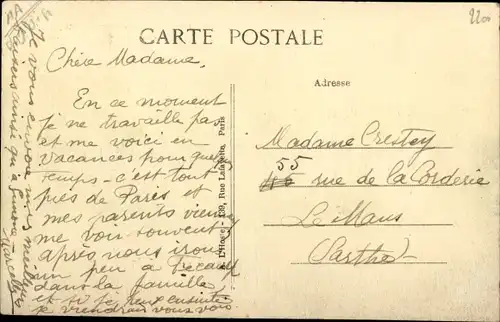 22
CARTE POSTALE
Chère Madame,
En ce moment
je ne travaille pas
et me voici en
vacances pour quelque
temps - c'est tout
près de Paris et
mes parents viennent
me voir souvent
après nous irons
un peu à Fécamp
dans la famille
et si je peux ensuite
je viendrais vous voir
Je vous envoie mes meilleurs
baisers ainsi qu'à
L'Hoste, 130, Rue Lafayette, Paris
Adresse
Madame Crestey
55
46 rue de la Corderie
Le Mans
(Sarthe)